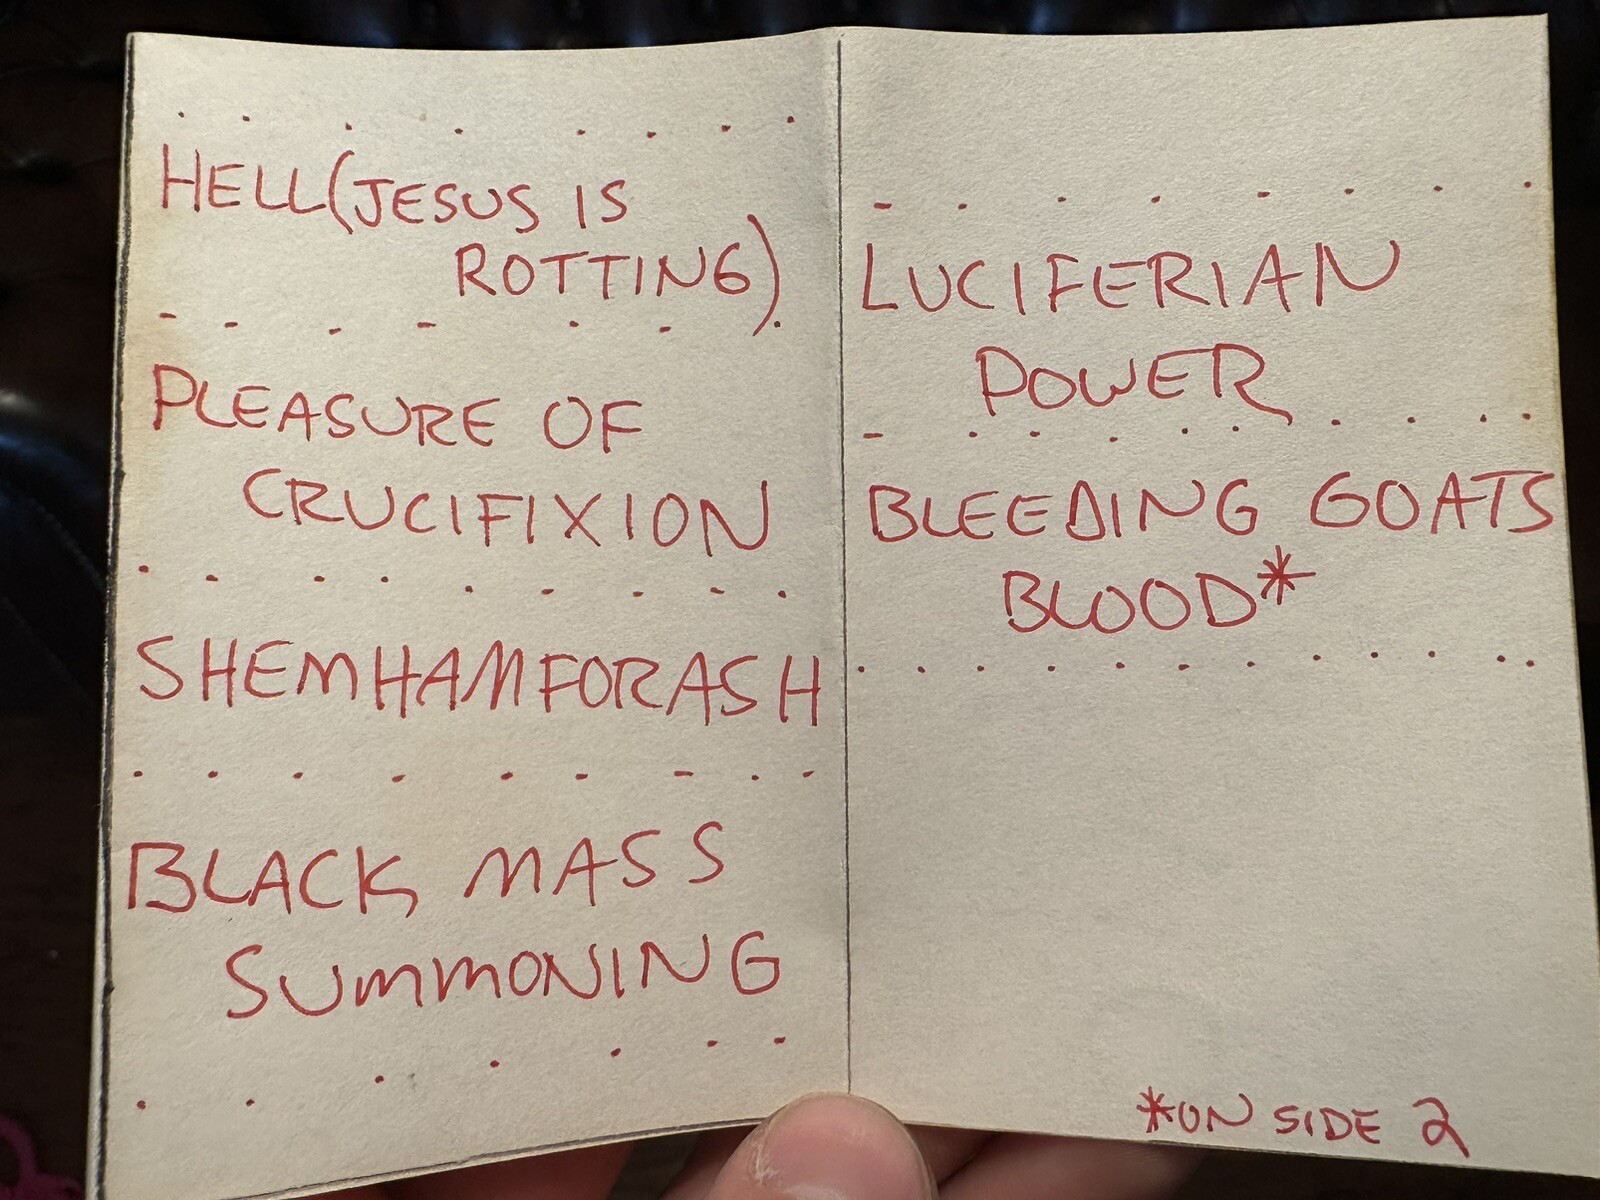 HELL(JESUS IS
ROTTING)
PLEASURE OF
CRUCIFIXION
SHEMHAMFORASH
BLACK MASS
SUMMONING
LUCIFERIAN
POWER
BLEEDING GOATS
BLOOD*
*ON SIDE 2